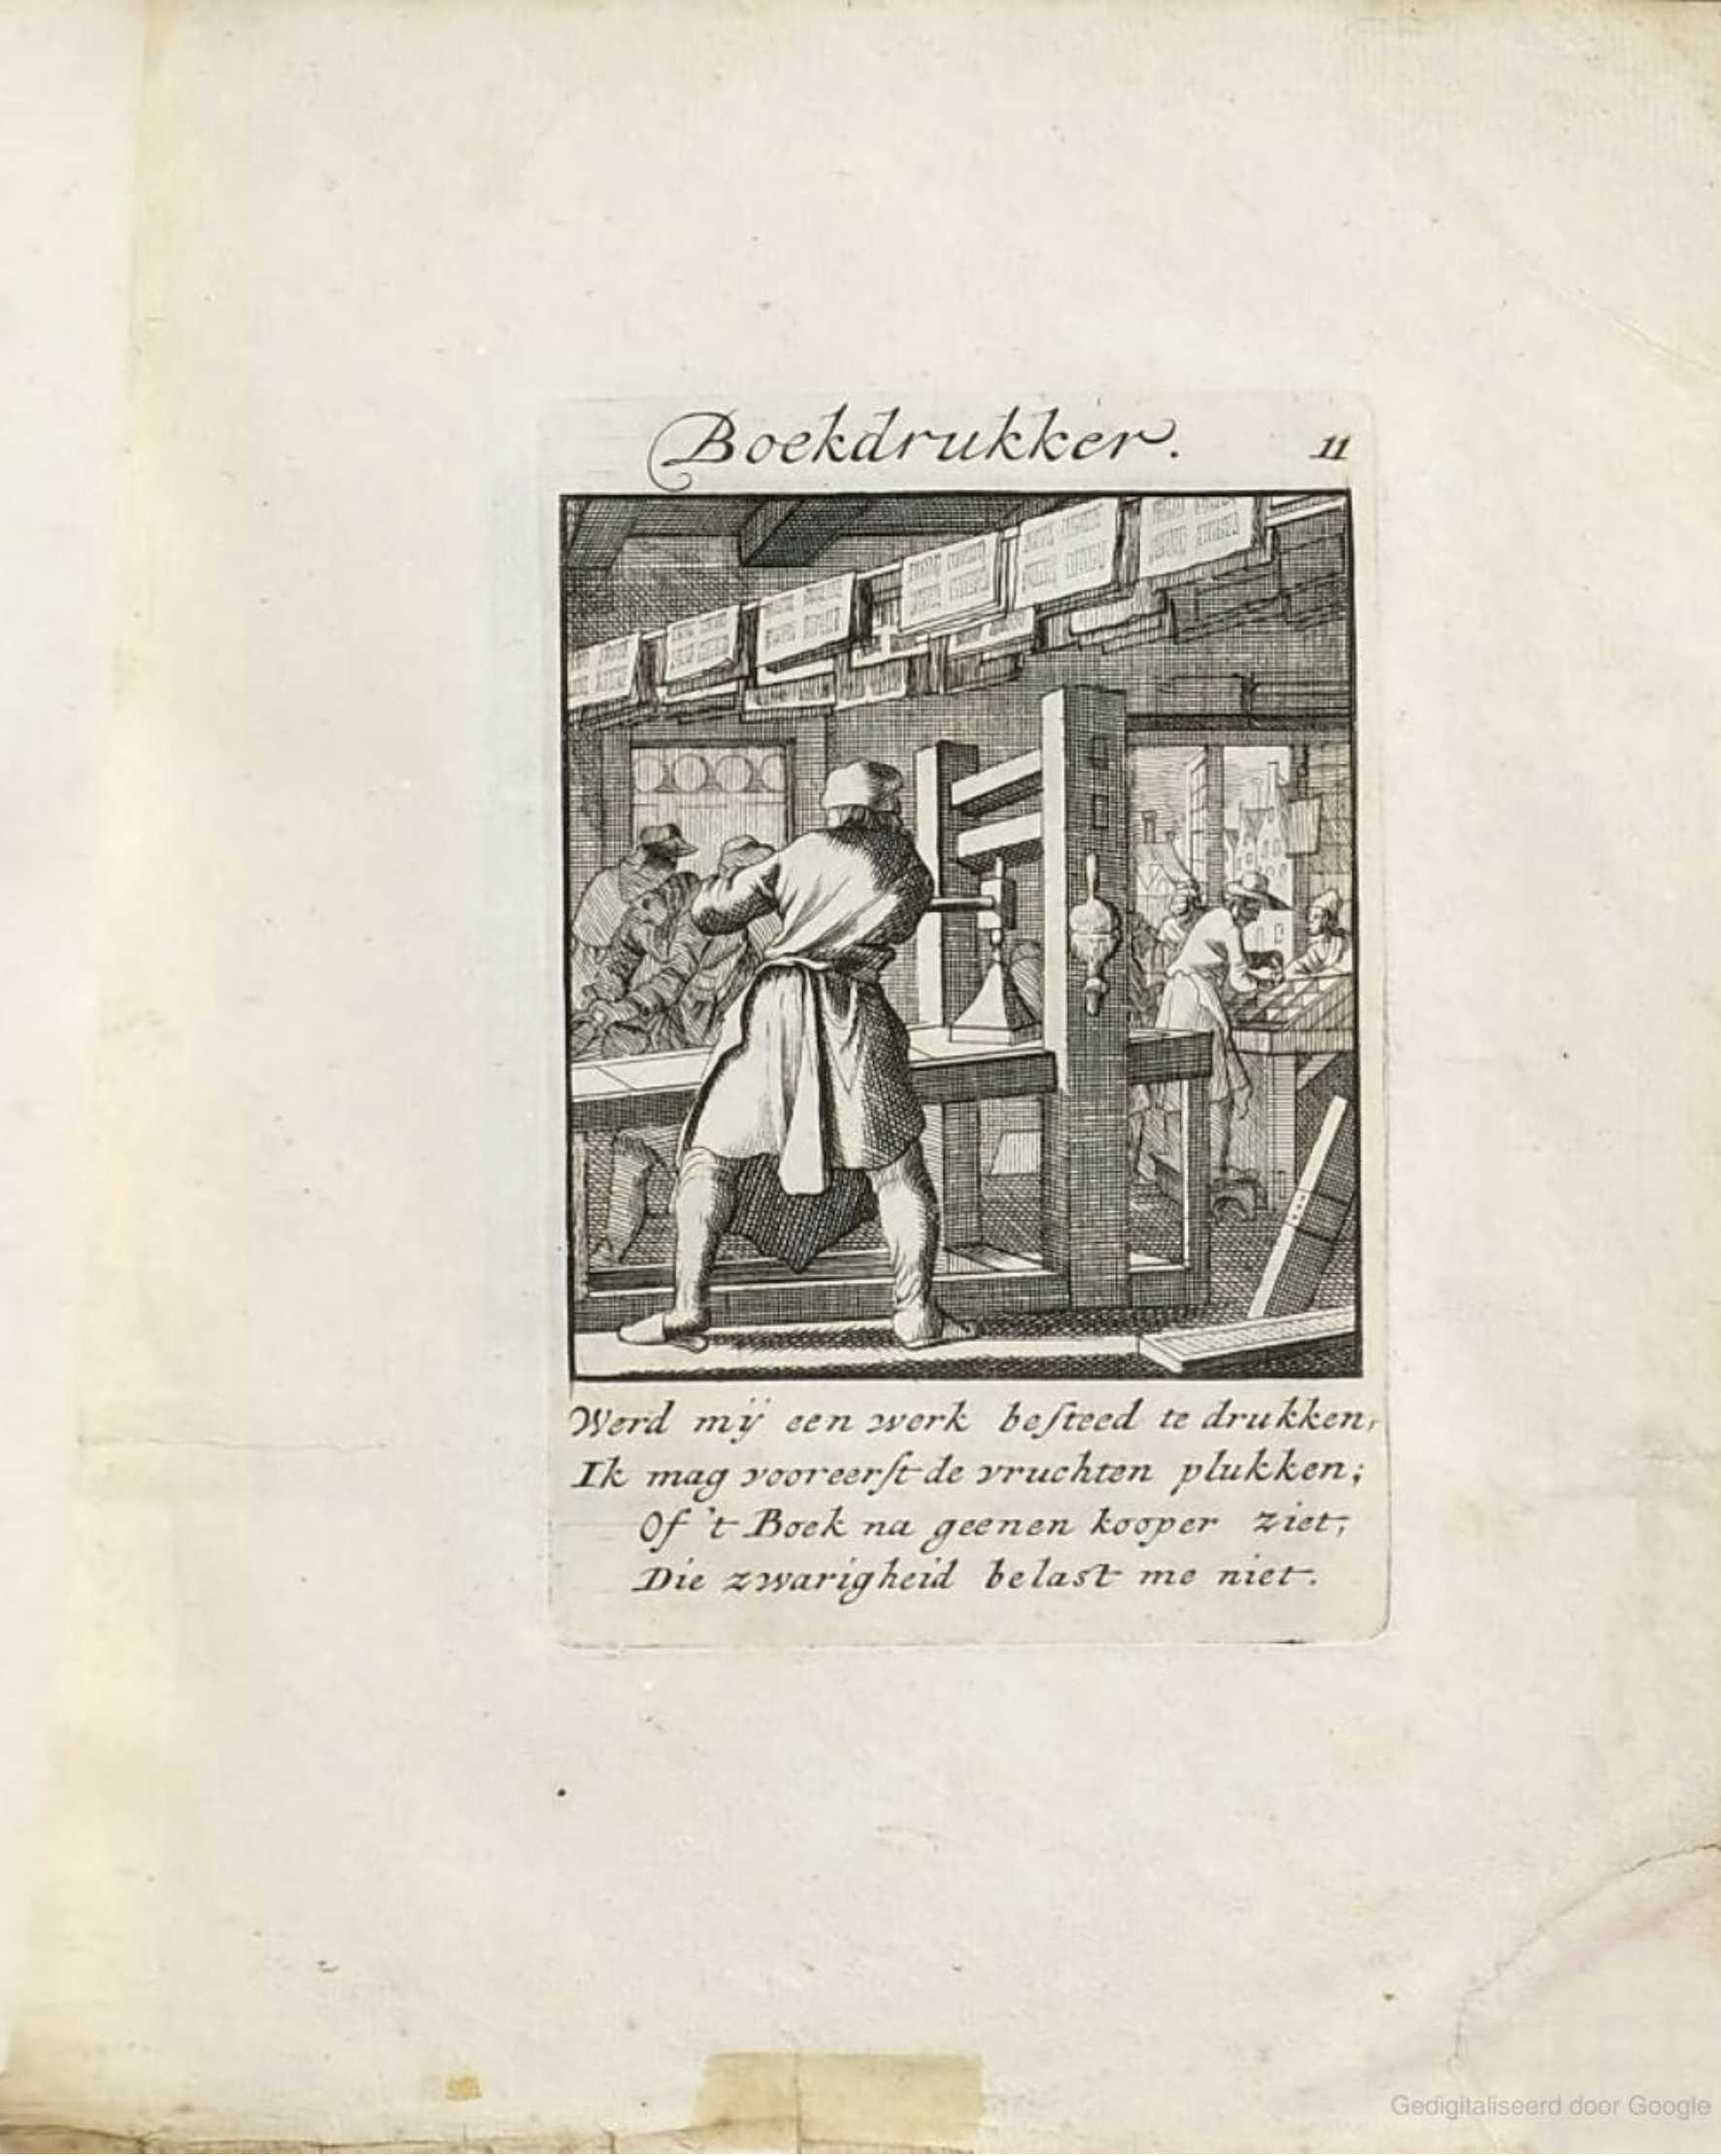 Boekdrukker. 11
Werd mÿ een werk beſteed te drukken,
Ik mag vooreerſt de vruchten plukken;
Of 't Boek na geenen kooper ziet,
Die zwarigheid belast me niet.
Gedigitaliseerd door Google